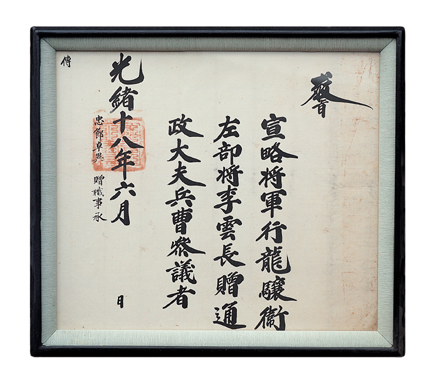 敎旨
宣略將軍行龍驤衛
左部將李雲長贈通
政大夫兵曹參議者
光緖十八年六月 日
忠節卓異 贈職事承
傳